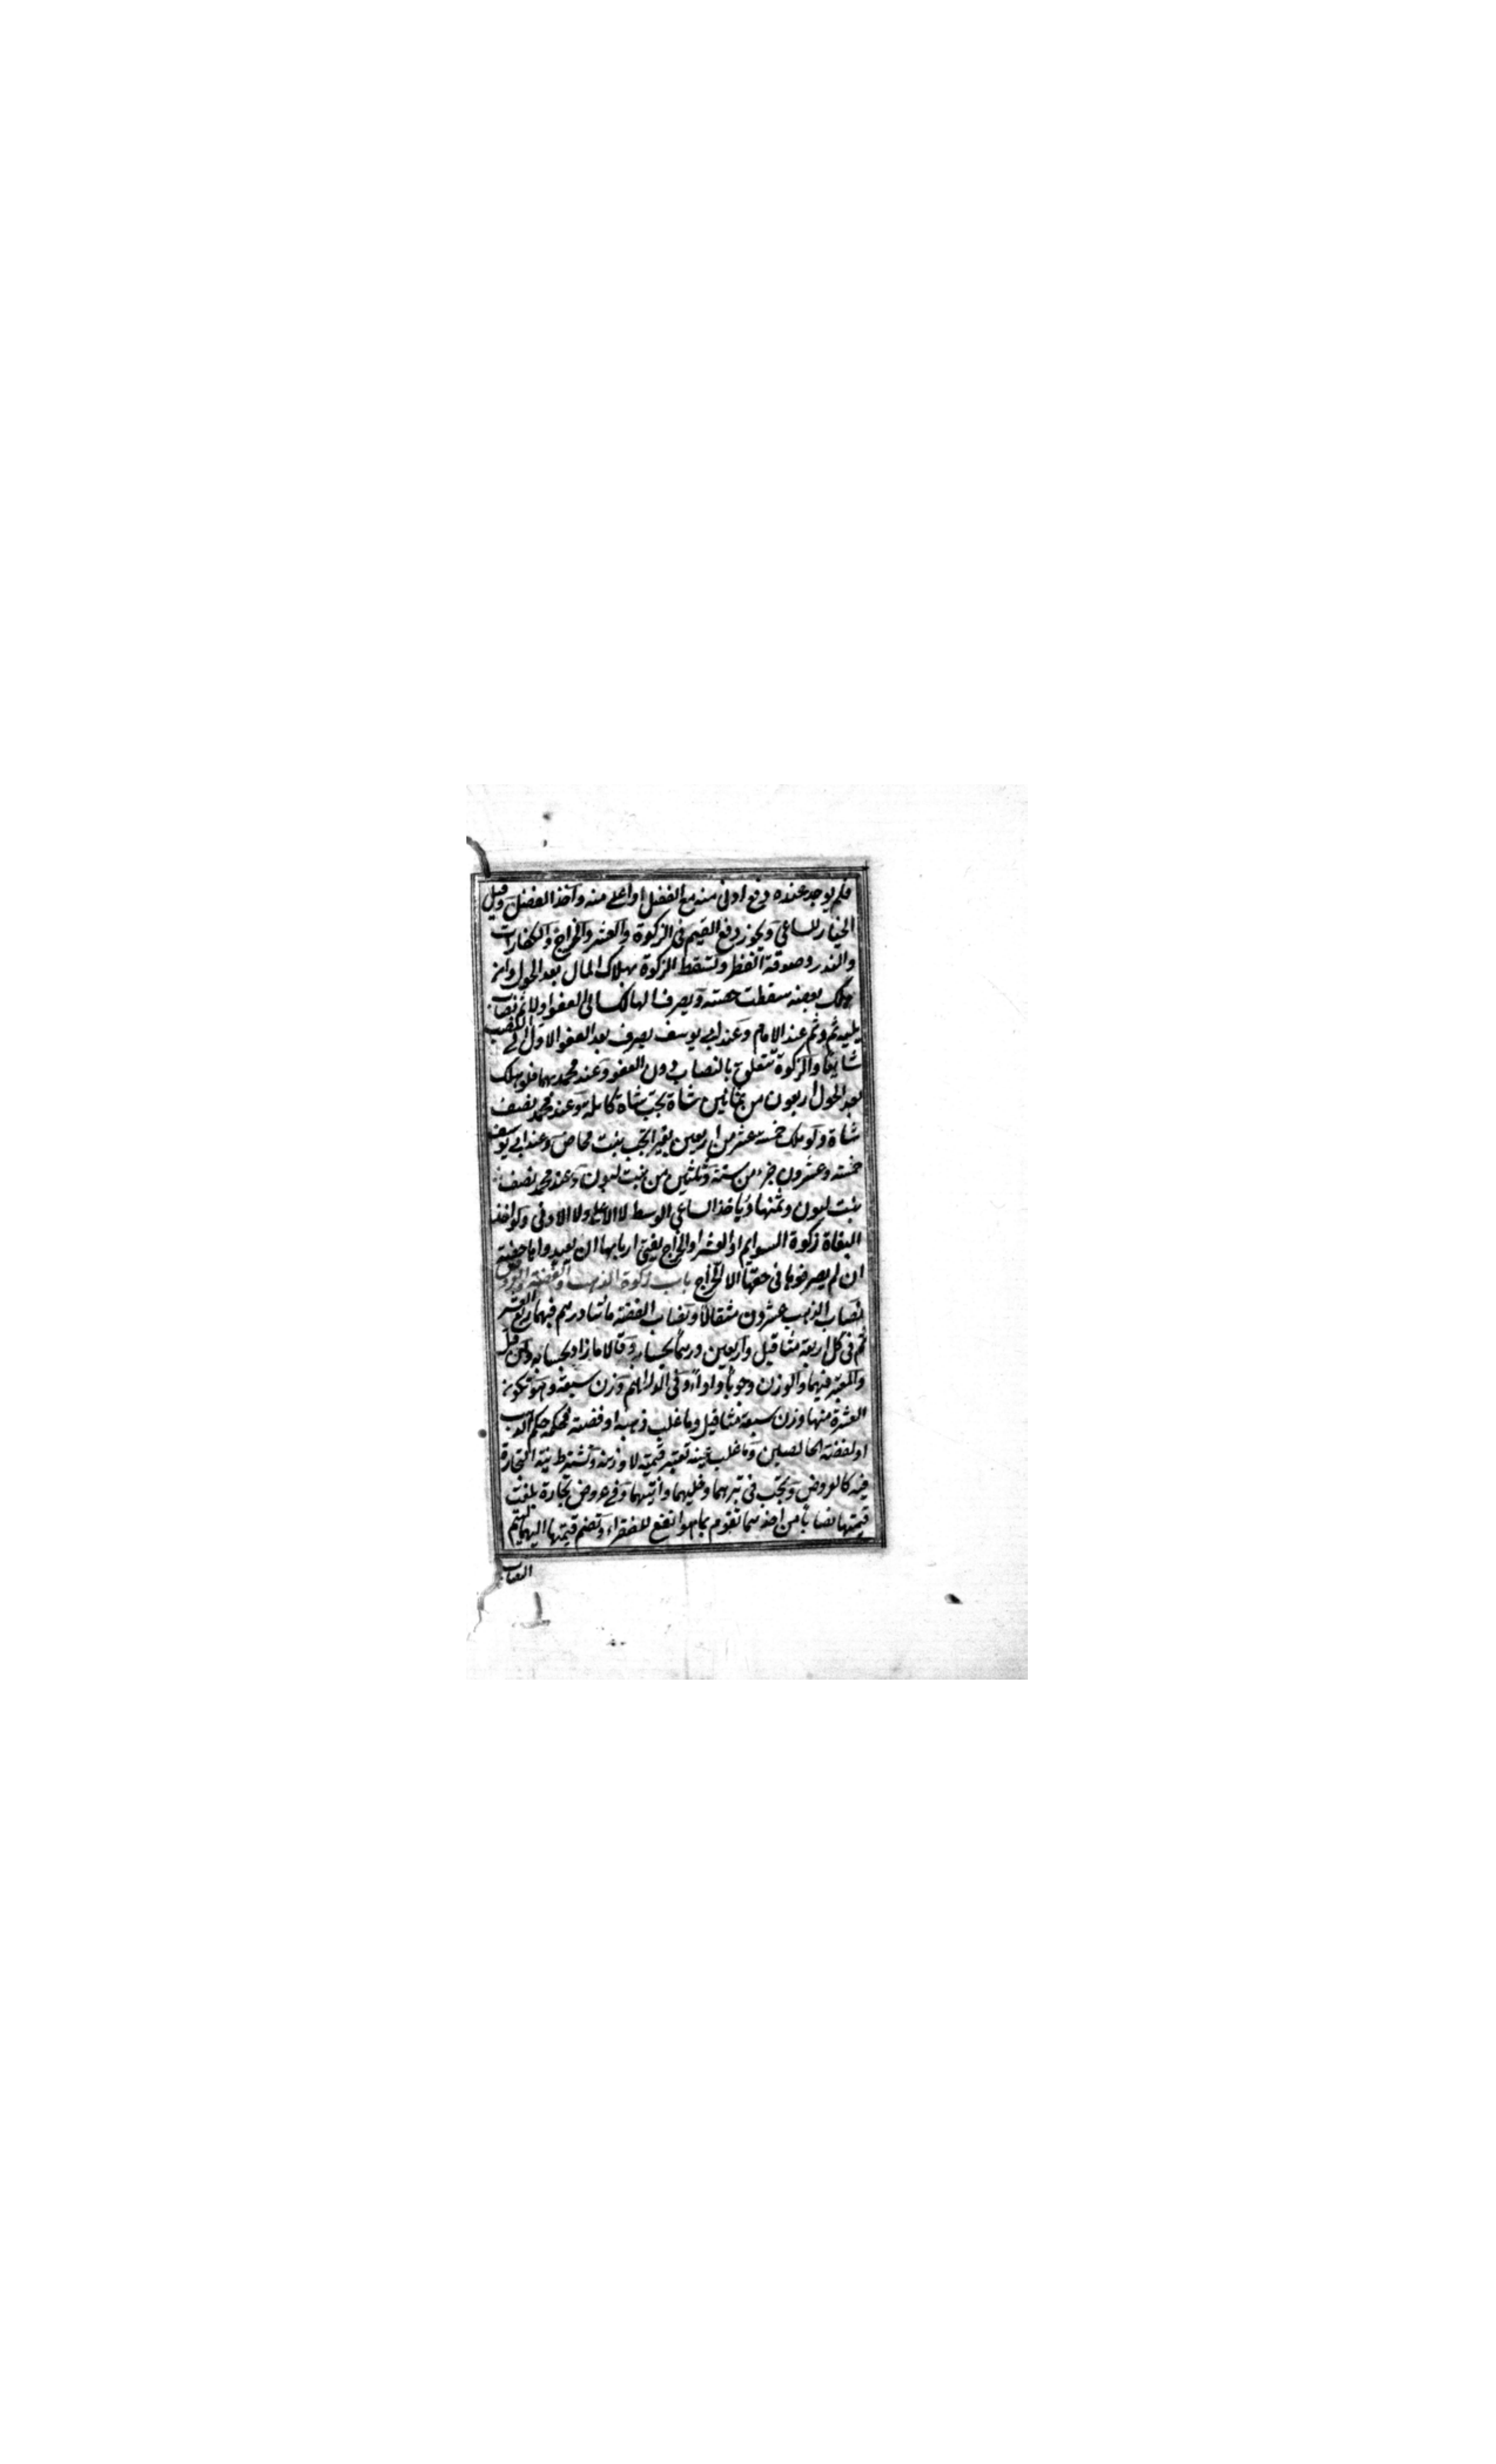 فلم يوجد عنده دفع ادنى منه مع الفضل او اعلى منه واخذ الفضل وقيل
الخيار للساعي ويجوز دفع القيم فى الزكوة والعشر والخراج والكفارات
والنذر وصدقة الفطر وتسقط الزكوة بهلاك المال بعد الحول وان
هلك بعضه سقطت حصته ويصرف الهالك الى العفو اولا ثم نصاب
يليه ثم وثم عند الامام وعند ابى يوسف يصرف بعد العفو الاول الى النصب
شايعا والزكوة تتعلق بالنصاب دون العفو وعند محمد بهما فلو هلك
بعد الحول اربعون من ثمانين شاة تجب شاة كاملة وعند محمد نصف
شاة ولو هلك خمسة عشر من اربعين بغيرا تجب بنت مخاض وعند ابى يوسف
خمسة وعشرون جزء من ستة وثلثين من بنت لبون وعند محمد نصف
بنت لبون وثمنها وياخذ الساعي الوسط لا الاعلى ولا الادنى ولو اخذ
البغاة زكوة السوايم او العشر او الخراج يفتى اربابها ان يعيدوها خفية
ان لم يصرفوها فى حقها الا الخراج باب زكوة الذهب والفضة والعروض
نصاب الذهب عشرون مثقالا ونصاب الفضة مائتا درهم فبهما ربع العشر
ثم فى كل اربعة مثاقيل واربعين درهما بحسابه وقالا ما زاد بحسابه وان قل
والمعتبر فيهما الوزن وجوبا واداء وفى الدراهم وزن سبعة وهو ان تكون
العشرة منها وزن سبعة مثاقيل وما غلب ذهبه او فضته فحكمه حكم الذهب
او الفضة الخالصين وما غلب غشه تعتبر قيمته لا وزنه وتشترط نية التجارة
فيه كالعروض وتجب فى تبرهما وحليهما وانيتهما وفى عروض تجارة بلغت
قيمتها نصابا من احدهما تقوم بما هو انفع للفقراء وتضم قيمتها اليهما ليتم
النصاب